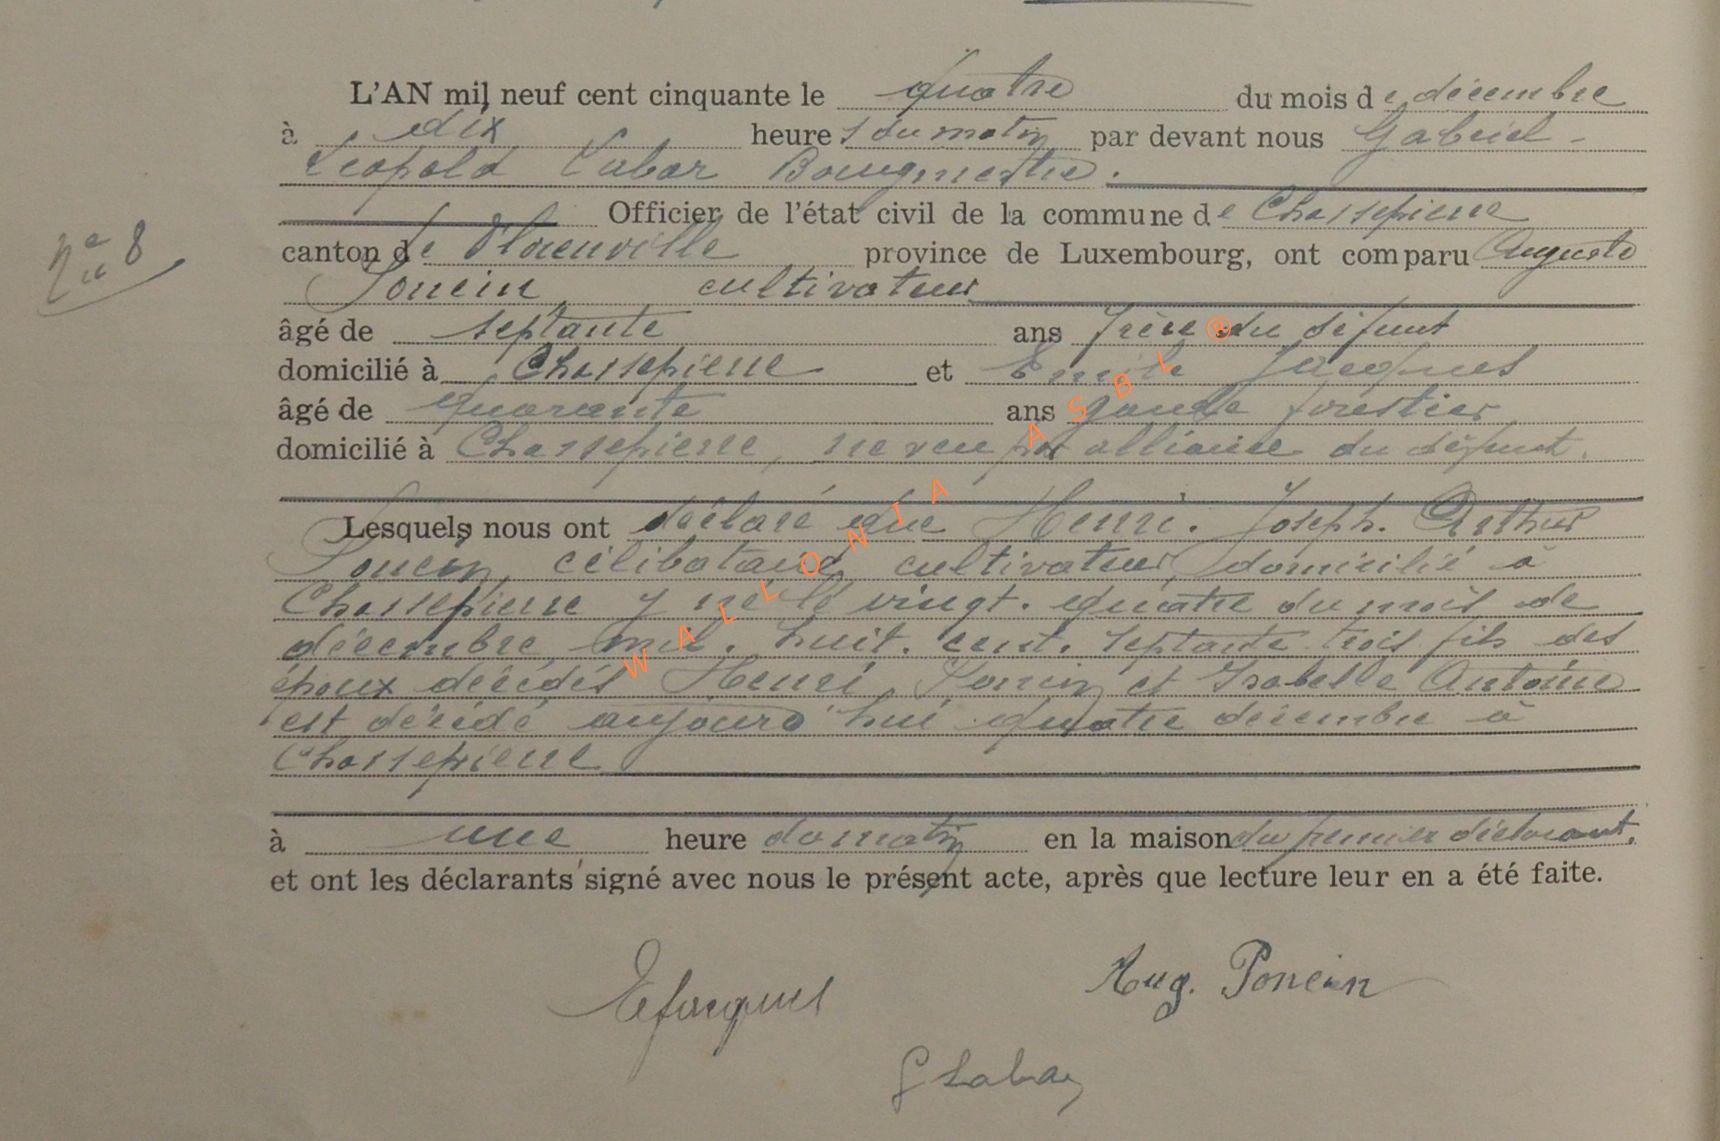 L'AN mil neuf cent cinquante le quatre du mois de décembre
à dix heures du matin par devant nous Gabriel-
Léopold Labar Bourgmestre.
Officier de l'état civil de la commune de Chassepierre
N° 8
canton de Florenville province de Luxembourg, ont comparu Auguste
Poncin, cultivateur
âgé de septante ans frère du défunt
domicilié à Chassepierre et Emile Jacques
âgé de quarante ans garde forestier
domicilié à Chassepierre, neveu par alliance du défunt.
Lesquels nous ont déclaré que Henri. Joseph. Arthur
Poncin, célibataire, cultivateur, domicilié à
Chassepierre y né le vingt. quatre du mois de
décembre mil. huit. cent. septante trois fils des
époux décédés Henri Poncin et Isabelle Antoine
est décédé aujourd'hui quatre décembre à
Chassepierre
à une heure du matin en la maison du premier déclarant.
et ont les déclarants signé avec nous le présent acte, après que lecture leur en a été faite.
EJacques Aug. Poncin
G Labar
WALLONIA ASBL ®